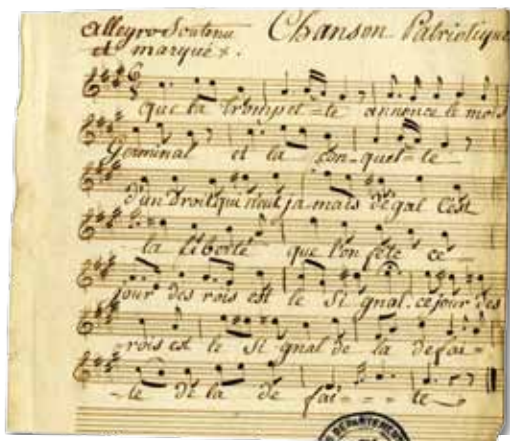 Allegro Soutenu
et marqué.
Chanson Patriotique
Que la trompet=te annonce le mois
Germinal et la con-quet=te
d'un Droit qui n'eut ja-mais d'égal C'est
la Liberté que l'on fête ce
jour des rois est le Si gnal. ce jour des
rois est le Si gnal de la defai=
-te de la de fai=-=-te
DEPARTEMEN